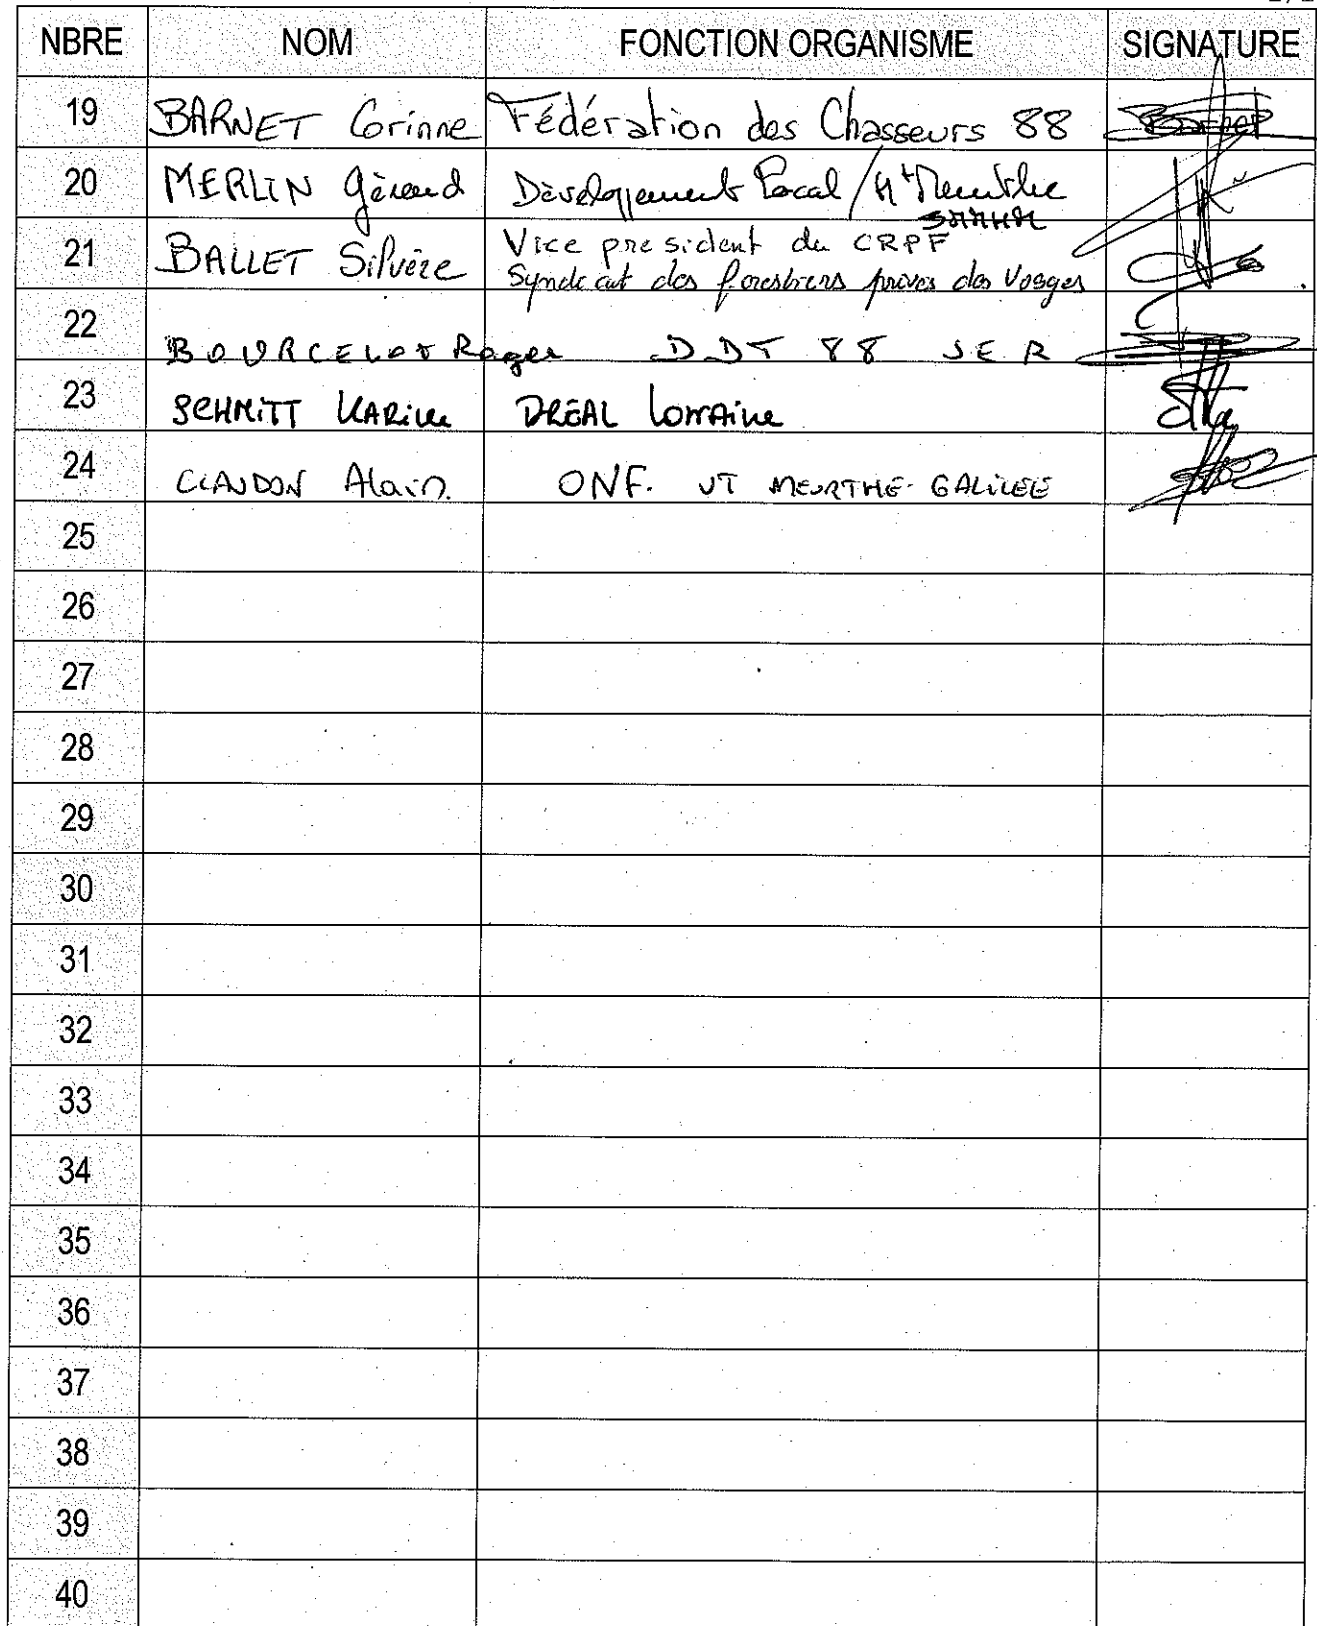 NBRE NOM FONCTION ORGANISME SIGNATURE
19 BARNET Corinne Fédération des Chasseurs 88 Barnet
20 MERLIN Gérard Développement Local / Hte Meurthe
21 BALLET Silvère Vice president du CRPF
Syndicat des forestiers privés des Vosges
22 BOURCELOT Roger DDT 88 SER
23 SCHMITT KARINE DREAL LORRAINE
24 CLAUDON Alain. ONF. UT MEURTHE-GALILEE
25
26
27
28
29
30
31
32
33
34
35
36
37
38
39
40